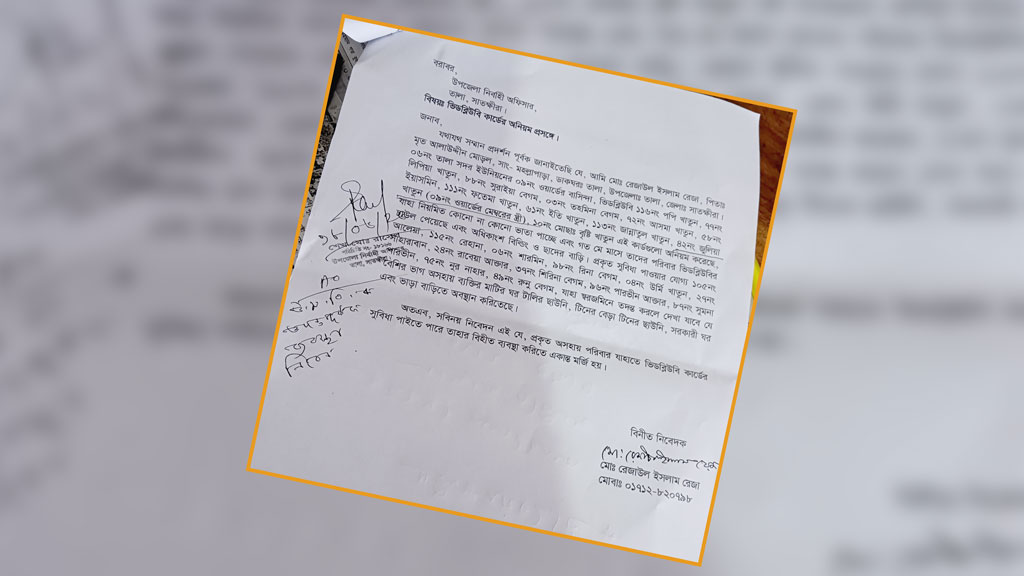 বরাবর,
উপজেলা নির্বাহী অফিসার,
তালা, সাতক্ষীরা।
বিষয়ঃ ভিডব্লিউবি কার্ডের অনিয়ম প্রসঙ্গে।
জনাব,
যথাযথ সম্মান প্রদর্শন পূর্বক জানাইতেছি যে, আমি মোঃ রেজাউল ইসলাম রেজা, পিতাঃ
মৃত আলাউদ্দীন মোড়ল, সাং- মহল্লাপাড়া, ডাকঘরঃ তালা, উপজেলাঃ তালা, জেলাঃ সাতক্ষীরা।
০৬নং তালা সদর ইউনিয়নের ০৯নং ওয়ার্ডের বাসিন্দা, ভিডব্লিউবি ১১৬নং পপি খাতুন, ৭৭নং
লিপিয়া খাতুন, ৮৮নং সুরাইয়া বেগম, ০৩নং তহমিনা বেগম, ৭২নং আসমা খাতুন, ৫৮নং
ইয়াসমিন, ১১১নং ফতেমা খাতুন, ৬১নং ইতি খাতুন, ১১৩নং জান্নাতুল খাতুন, ৪২নং জুলিয়া
খাতুন (০৯নং ওয়ার্ডের মেম্বরের স্ত্রী), ১০নং মোছাঃ বৃষ্টি খাতুন এই কার্ডগুলো অনিয়ম করেছে,
যাহা নিয়মিত কোনো না কোনো ভাতা পাচ্ছে এবং গত মে মাসে তাদের পরিবার ভিডব্লিউবির
চাউল পেয়েছে এবং অধিকাংশ বিল্ডিং ও ছাদের বাড়ি। প্রকৃত সুবিধা পাওয়ার যোগ্য ১০৫নং
আলেয়া, ১১৫নং রেহানা, ০৬নং শারমিন, ৯৮নং রিনা বেগম, ০৪নং উর্মি খাতুন, ২৭নং
শাহারাবান, ২৪নং রাবেয়া আক্তার, ৩৭নং শিরিনা বেগম, ৯৬নং পারভীন আক্তার, ৮৭নং সুমনা
পারভীন, ৭৫নং নুর নাহার, ৪৯নং রুনু বেগম, যাহা স্বরজমিনে তদন্ত করলে দেখা যাবে যে
বেশির ভাগ অসহায় ব্যক্তির মাটির ঘর টালির ছাউনি, টিনের বেড়া টিনের ছাউনি, সরকারী ঘর
এবং ভাড়া বাড়িতে অবস্থান করিতেছে।
অতএব, সবিনয় নিবেদন এই যে, প্রকৃত অসহায় পরিবার যাহাতে ভিডব্লিউবি কার্ডের
সুবিধা পাইতে পারে তাহার বিহীত ব্যবস্থা করিতে একান্ত মর্জি হয়।
উপজেলা নির্বাহী অফিসার
তালা, সাতক্ষীরা
বিনীত নিবেদক
মোঃ রেজাউল ইসলাম রেজা
মোবাঃ ০১৭১২-৮২০৭৯৮